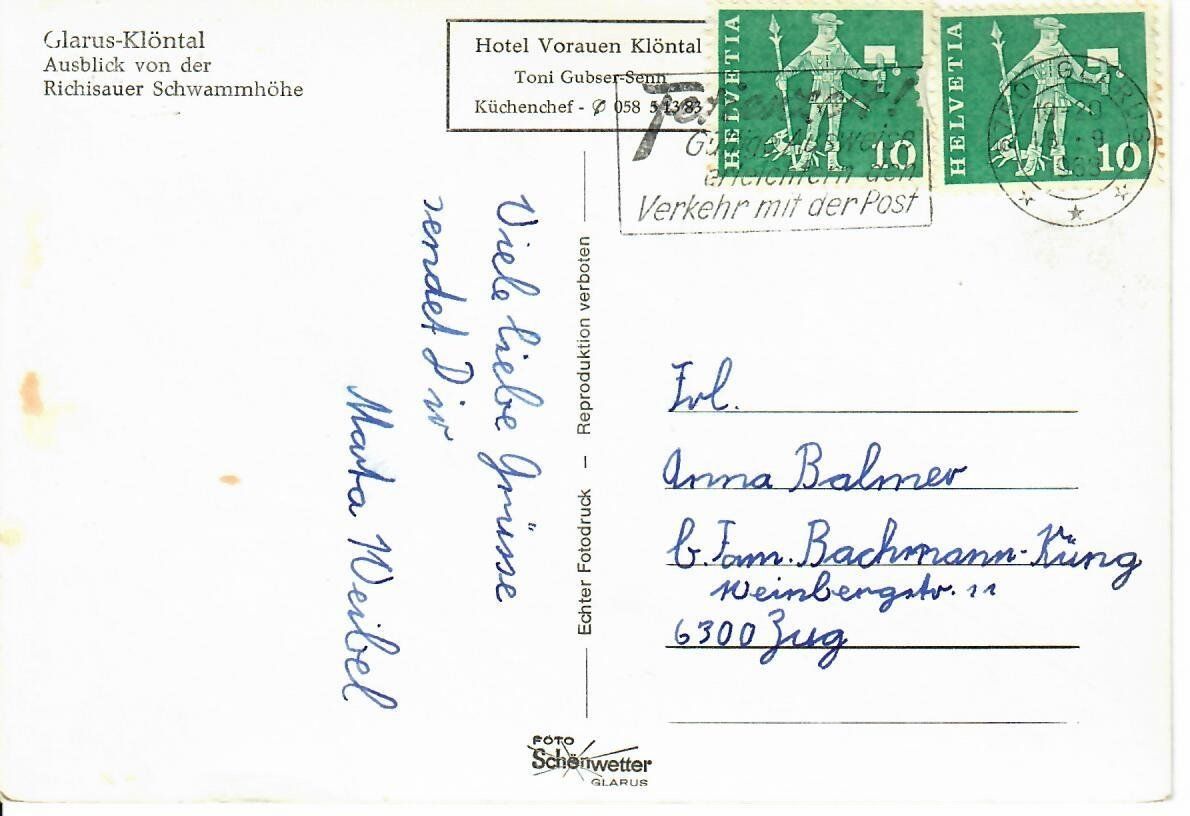 Glarus-Klöntal
Ausblick von der
Richisauer Schwammhöhe
Hotel Vorauen Klöntal
Toni Gubser-Senn
Küchenchef - ✆ 058 5 13 83
HELVETIA
10
HELVETIA
10
Gültige Ausweise
erleichtern den
Verkehr mit der Post
GLARUS
Viele liebe Grüsse
sendet Dir
Marta Weibel
Echter Fotodruck – Reproduktion verboten
Frl.
Anna Balmer
b. Fam. Bachmann-Küng
Weinbergstr. 11
6300 Zug
FOTO
Schönwetter
GLARUS